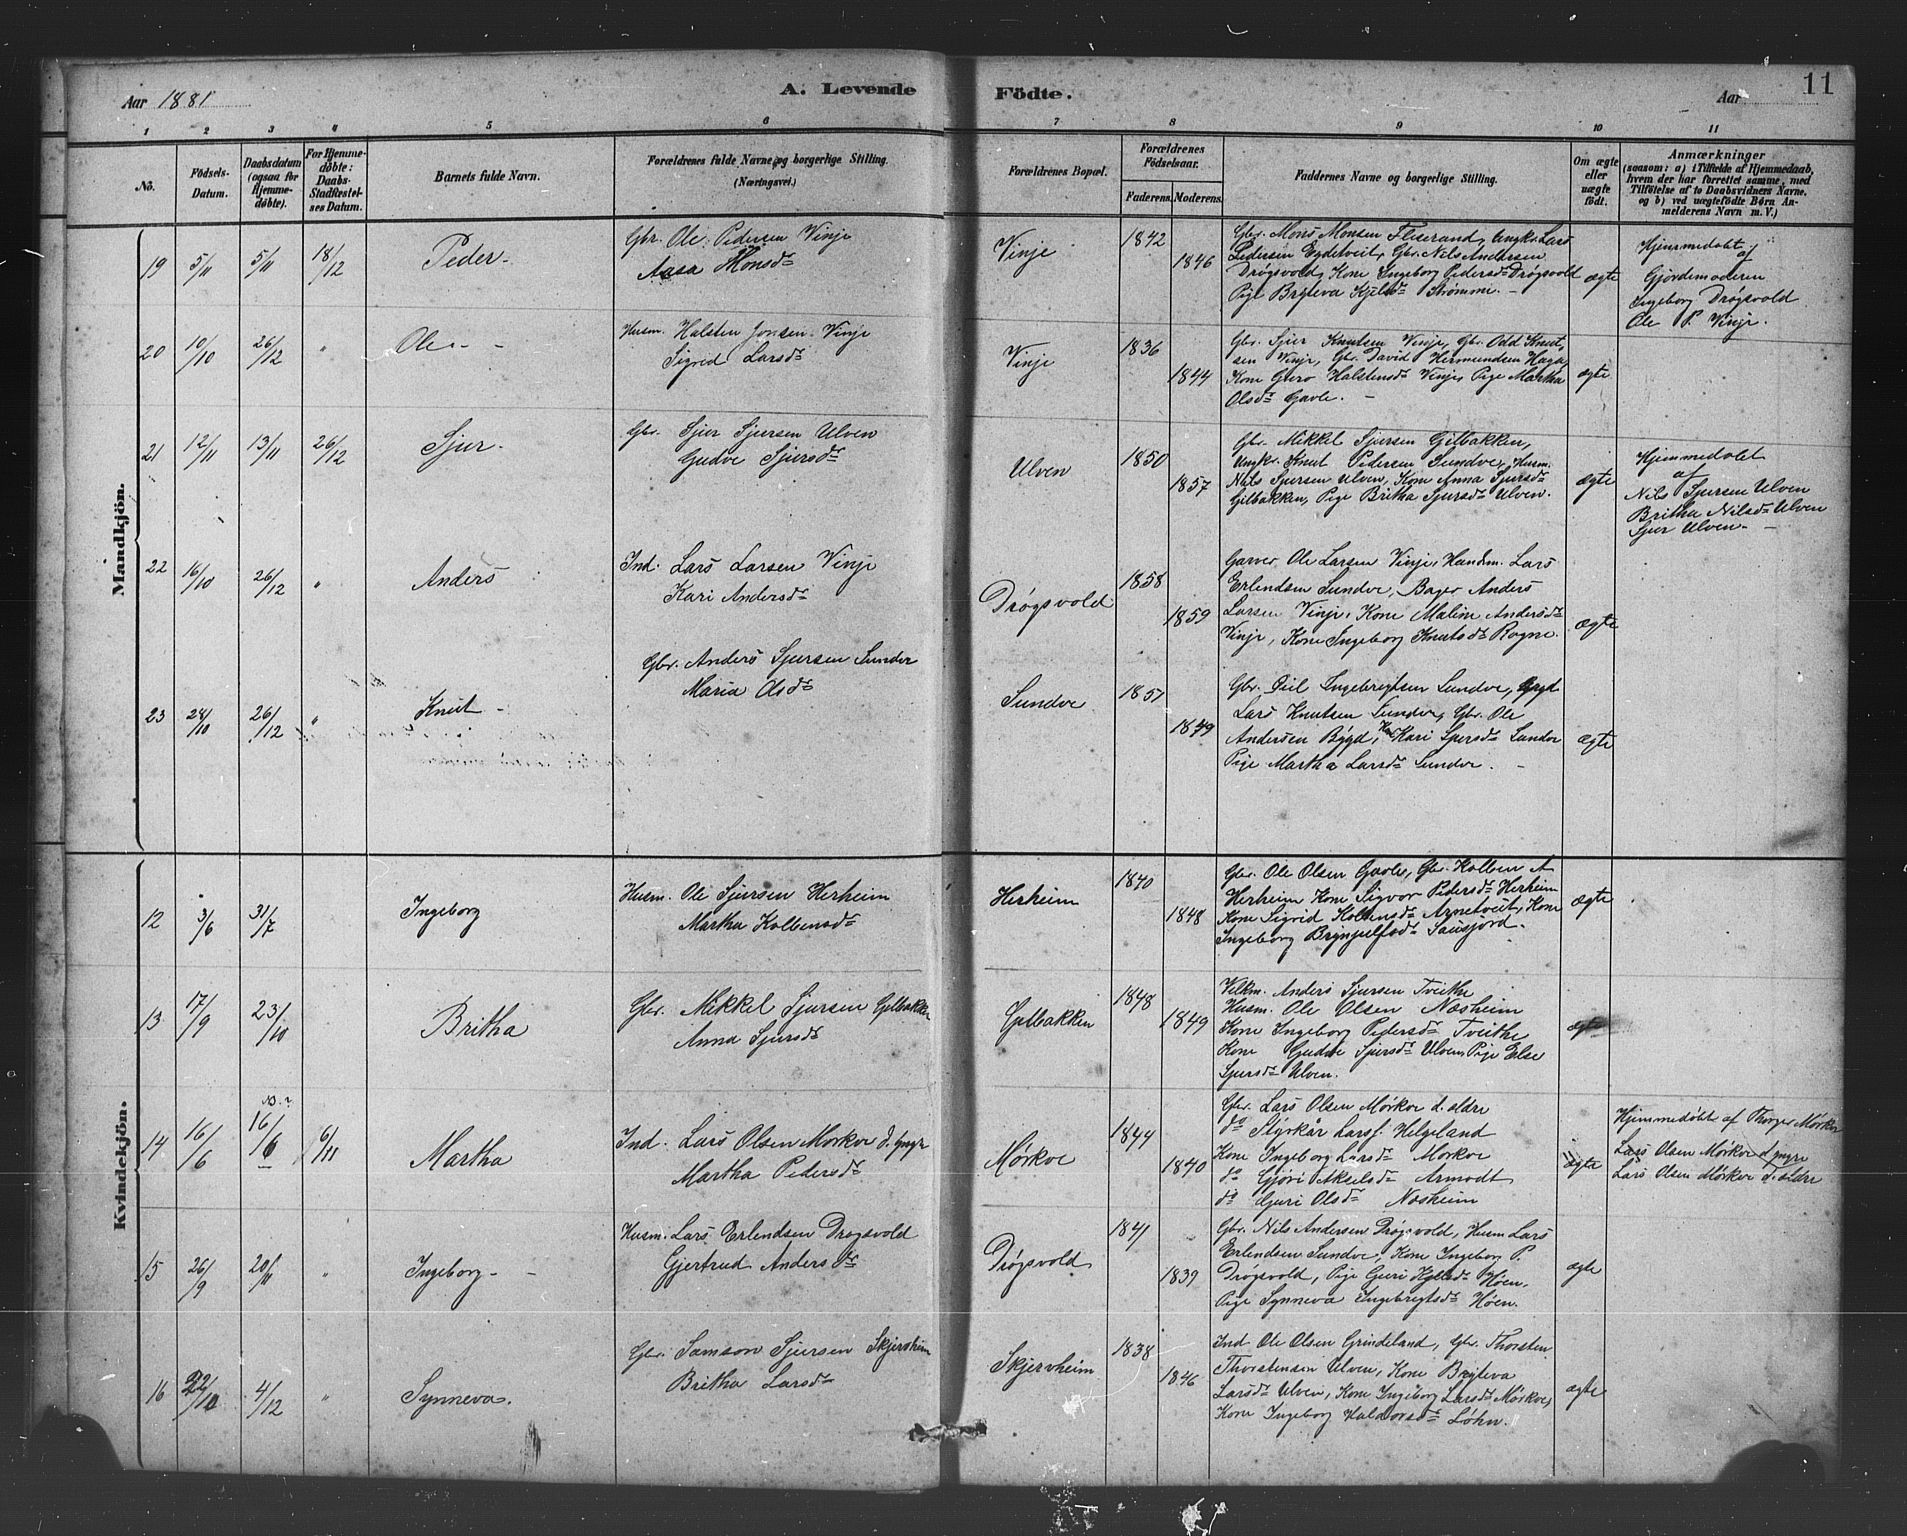 Aar 1881
A. Levende
Födte.
Aar
11
1 2 3 4 5 6 7 8 9 10 11
No.
Födsels-
Datum.
Daabsdatum
(ogsaa for
Hjemme-
döbte).
For Hjemme-
döbte:
Daabs-
Stadfæstel-
ses Datum.
Barnets fulde Navn.
Forældrenes fulde Navne og borgerlige Stilling.
(Næringsvei.)
Forældrenes Bopæl.
Forældrenes
Födselsaar.
Faderens.
Moderens.
Faddernes Navne og borgerlige Stilling.
Om ægte
eller
uægte
födt.
Anmærkninger
(saasom: a) i Tilfælde af Hjemmedaab,
hvem der har forrettet samme, med
Tilföielse af to Daabsvidners Navne.
og b) ved uægtefödte Börn An-
melderens Navn m. V.)
Mandkjön.
19 5/11 5/11 18/12 Peder -
Gbr. Ole Pedersen Vinje
Aasa Monsdr
Vinje 1842 1846
Gbr. Mons Monsen, Ungkr. Lars
Pedersen Egdetveit, Gbr. Nils Andersen
Drøgsvold, Kone Ingeborg Pedersdr Drøgsvold
Pige Bryteva Kjelsdr Strømme. -
ægte
Hjemmedøbt
af
Gjordemoderen
Ingeborg Drøgsvold
Ole P. Vinje.
20 10/10 26/12 " Ole - -
Husm. Halsten Jonsen Vinje
Sigrid Larsdr
Vinje 1836 1844
Gbr. Sjur Knutsen Vinje, Gbr. Odd Knut-
sen Vinje, Gbr. David Hermundsen Haga,
Kone Guro Halstensdr Vinje, Pige Martha
Olsdr Gavle. -
ægte
21 12/11 13/11 26/12 Sjur -
Gbr. Sjur Sjursen Ulven
Gudve Sjursdr
Ulven 1850 1857
Gbr. Mikkel Sjursen Gilbakken,
Ungkr. Knut Pedersen Sundve, Husm.
Nils Sjursen Ulven, Kone Anna Sjursdr
Gilbakken, Pige Britha Sjursdr Ulven.
ægte
Hjemmedøbt
af
Nils Sjursen Ulven
Britha Nilsdr Ulven
Sjur Ulven. -
22 16/10 26/12 " Anders
Ind. Lars Larsen Vinje
Kari Andersdr
Drøgsvold 1858 1859
Garver Ole Larsen Vinje, Handm. Lars
Erlendsen Sundve, Bager Anders
Larsen Vinje, Kone Malene Andersdr
Vinje, Kone Ingeborg Knutsdr Rogne.
ægte
23 24/10 26/12 " Knut -
Gbr. Anders Sjursen Sundve
Maria Olsdr
Sundve 1851 1849
Gbr. Eiel Ingebrigtsen Sundve,
Lars Knutsen Sundve, Gbr. Ole
Andersen Bøyd, Kone Kari Sjursdr Sundve
Pige Martha Larsdr Sundve. -
ægte
Kvindekjön.
12 3/6 31/7 Ingeborg
Husm. Ole Sjursen Herheim
Martha Kolbensdr
Herheim 1840 1848
Gbr. Ole Olsen Gavle, Gbr. Kolben A
Herheim Kone Sigvor Pedersdr Herheim
Kone Sigrid Kolbensdr Arnetveit, Kone
Ingeborg Brynjulfsdr Sausjord.
ægte
13 17/9 23/10 Britha
Gbr. Mikkel Sjursen Gilbakken
Anna Sjursdr
Gilbakken 1848 1849
Velkm. Anders Sjursen Tveithe
Husm. Ole Olsen Næsheim
Kone Ingeborg Pedersdr Tveithe
Kone Gudve Sjursdr Ulven, Pige Else
Sjursdr Ulven.
ægte
14 16/6 N.B.? 16/6 6/11 Martha
Ind. Lars Olsen Mørkve d. yngre
Martha Pedersdr
Mørkve 1844 1840
Gbr. Lars Olsen Mørkve d. ældre
do Styrkår Larsf. Helgeland
Kone Ingeborg Larsdr Mørkve
do Gjøri Akselsdr Armodt
do Guri Olsdr Næsheim
ægte
Hjemmedøbt af Thorger Mørkve
Lars Olsen Mørkve d yngre
Lars Olsen Mørkve d. ældre
15 26/9 20/11 " Ingeborg - -
Husm. Lars Erlendsen Drøgsvold
Gjertrud Andersdr
Drøgsvold 1841 1839
Gbr. Nils Andersen Drøgsvold, Husm Lars
Erlendsen Sundve, Kone Ingeborg P.
Drøgsvold, Pige Guri Kjelsdr Høen,
Pige Synneva Ingebrigtsdr Høen.
ægte
16 22/10 4/12 " Synneva.
Gbr. Samson Sjursen Skjerveheim
Britha Larsdr
Skjerveheim 1838 1846
Ind Ole Olsen Grindeland, Gbr. Thorsten
Thorstensen Ulven, Kone Bryteva
Larsdr Ulven, Kone Ingeborg Larsdr Mørkve,
Kone Ingeborg Haldorsdr Løhn.
ægte